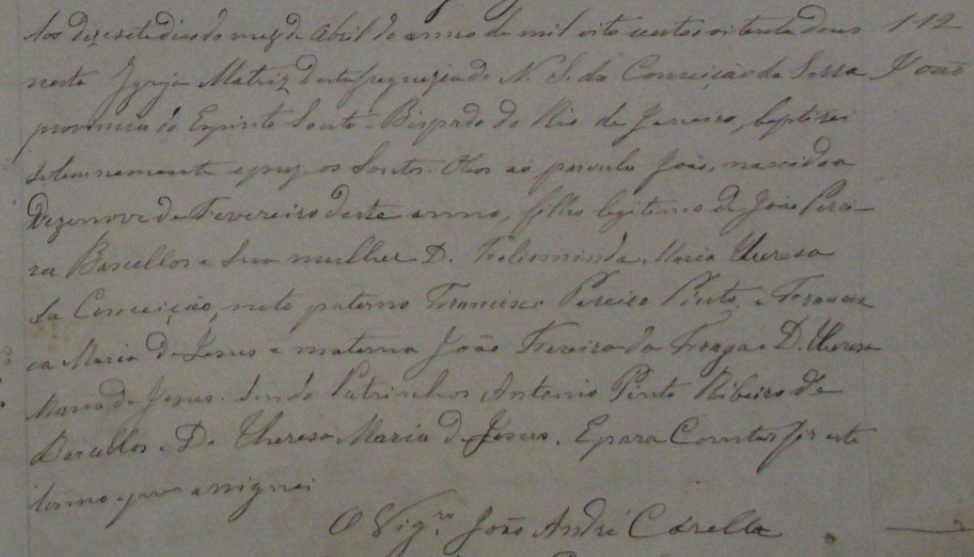 Aos dezesete dias do mez de Abril do anno de mil oito centos oitenta dous 112
nesta Igreja Matriz desta freguezia de N. S. da Conceição da Serra João
provincia do Espirito Santo - Bispado do Rio de Janeiro, baptisei
solemnemente e puz os Santos Oleos ao parvulo João, nascido a
Dezenove de Fevereiro deste anno, filho legitimo de João Perei-
ra Barcellos e sua mulher D. Maria Theresa
da Conceição, neto paterno Francisco Pereira Pinto, e Francis
ca Maria de Jesus e materna João Fraga e D. Theresa
Maria de Jesus. Sendo Patrinhos Antonio Pinto Ribeiro de
Barcellos e D. Theresa Maria de Jesus. E para Constar fiz este
termo que assignei
O Vigr.o João André Casella